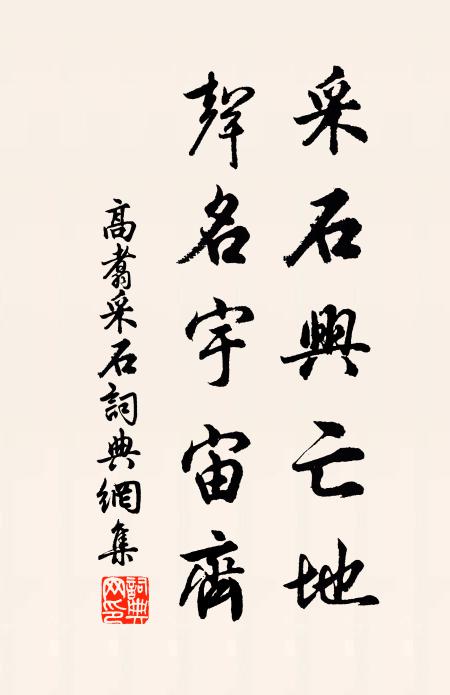 采石興亡地
聲名宇宙齊
高翥采石詞典網集
詞典網印